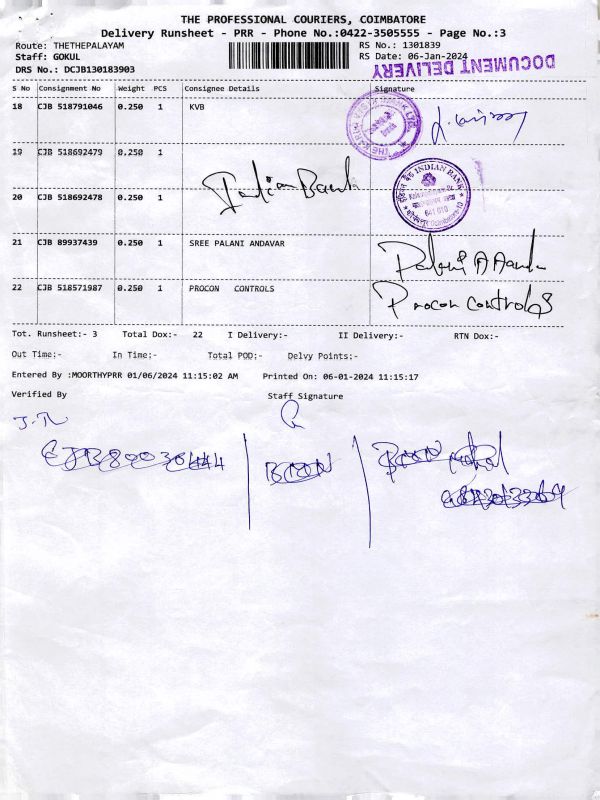 THE PROFESSIONAL COURIERS, COIMBATORE
Delivery Runsheet - PRR - Phone No.:0422-3505555 - Page No.:3
Route: THETHEPALAYAM RS No.: 1301839
Staff: GOKUL RS Date: 06-Jan-2024
DRS No.: DCJB130183903
DOCUMENT DELIVERY
S No Consignment No Weight PCS Consignee Details Signature
18 CJB 518791046 0.250 1 KVB
19 CJB 518692479 0.250 1
Indian Bank
INDIAN BANK
20 CJB 518692478 0.250 1
641 010
21 CJB 89937439 0.250 1 SREE PALANI ANDAVAR
Palani A Aandu
22 CJB 518571987 0.250 1 PROCON CONTROLS Procon Controls
Tot. Runsheet:- 3 Total Dox:- 22 I Delivery:- II Delivery:- RTN Dox:-
Out Time:- In Time:- Total POD:- Delvy Points:-
Entered By :MOORTHYPRR 01/06/2024 11:15:02 AM Printed On: 06-01-2024 11:15:17
Verified By Staff Signature